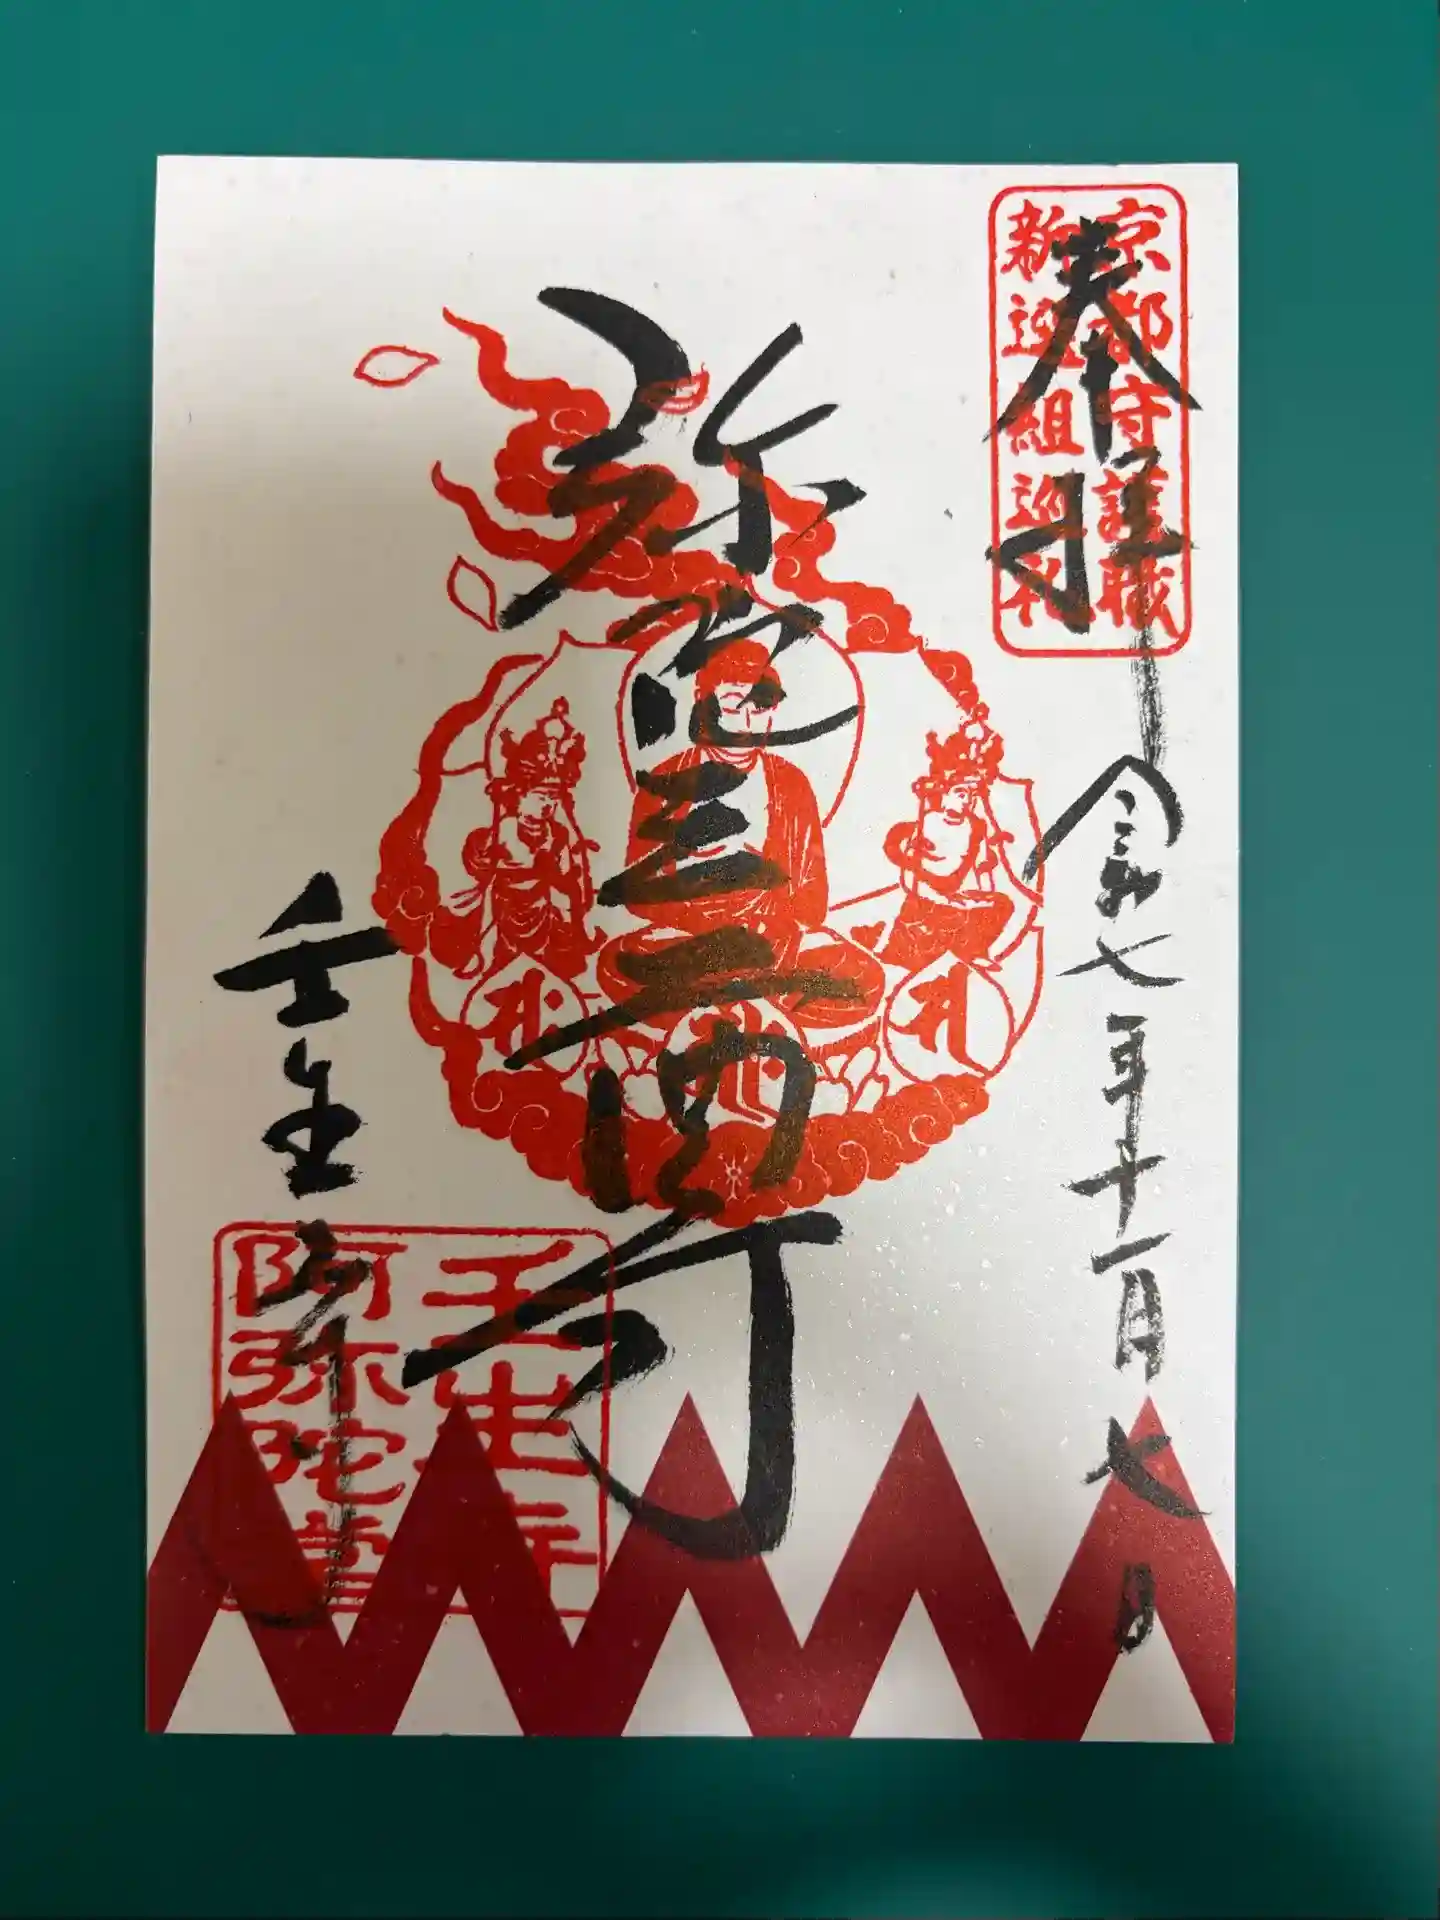 京都守護職
新選組巡礼
奉拝
令和七年十一月七日
壬生寺
壬生寺
阿弥陀堂